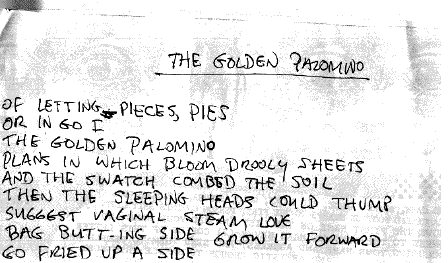 THE GOLDEN PALOMINO
OF LETTING PIECES, PIES
OR IN GO I
THE GOLDEN PALOMINO
PLANS IN WHICH BLOOM DROOLY SHEETS
AND THE SWATCH COMBED THE SOIL
THEN THE SLEEPING HEADS COULD THUMP
SUGGEST VAGINAL STEAM LOVE
BAG BUTT-ING SIDE GROW IT FORWARD
GO FRIED UP A SIDE